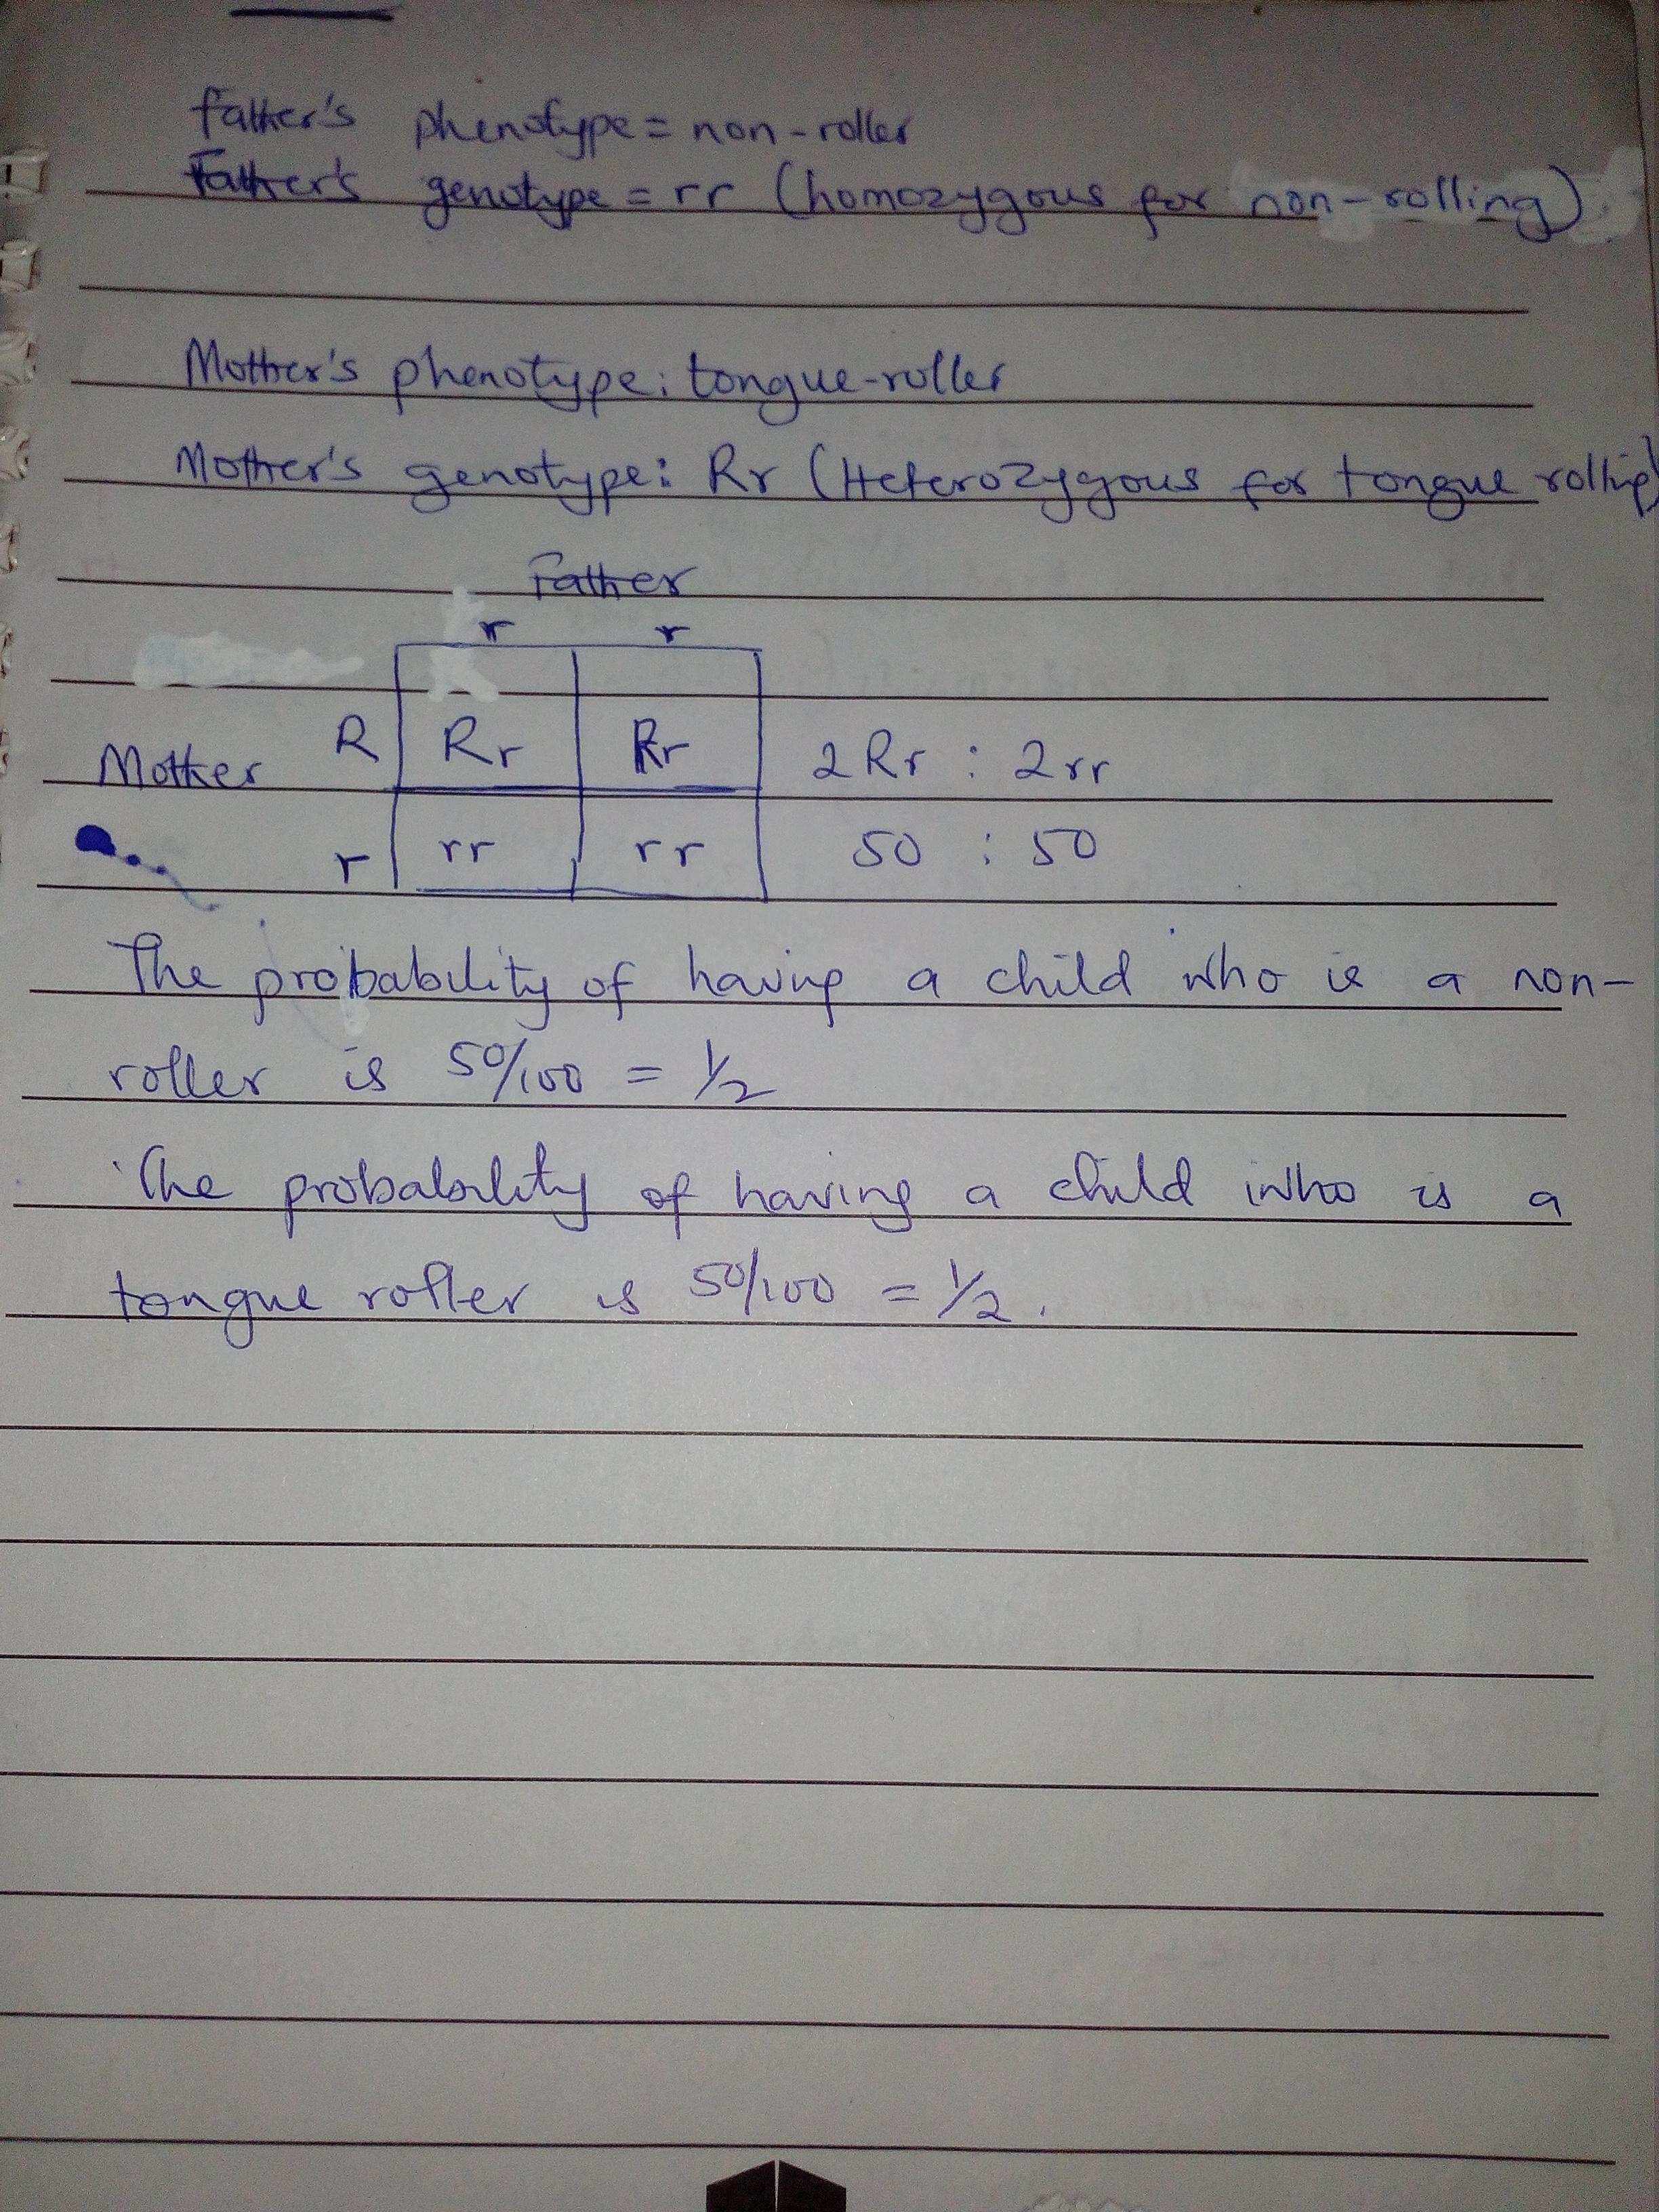 Father's phenotype = non-roller
Father's genotype = rr (homozygous for non-rolling)
Mother's phenotype: tongue-roller
Mother's genotype: Rr (Heterozygous for tongue rolling)
Father
r r
R Rr Rr
Mother 2Rr : 2rr
r rr rr 50 : 50
The probability of having a child who is a non-
roller is 50/100 = 1/2
The probability of having a child who is a
tongue roller is 50/100 = 1/2.